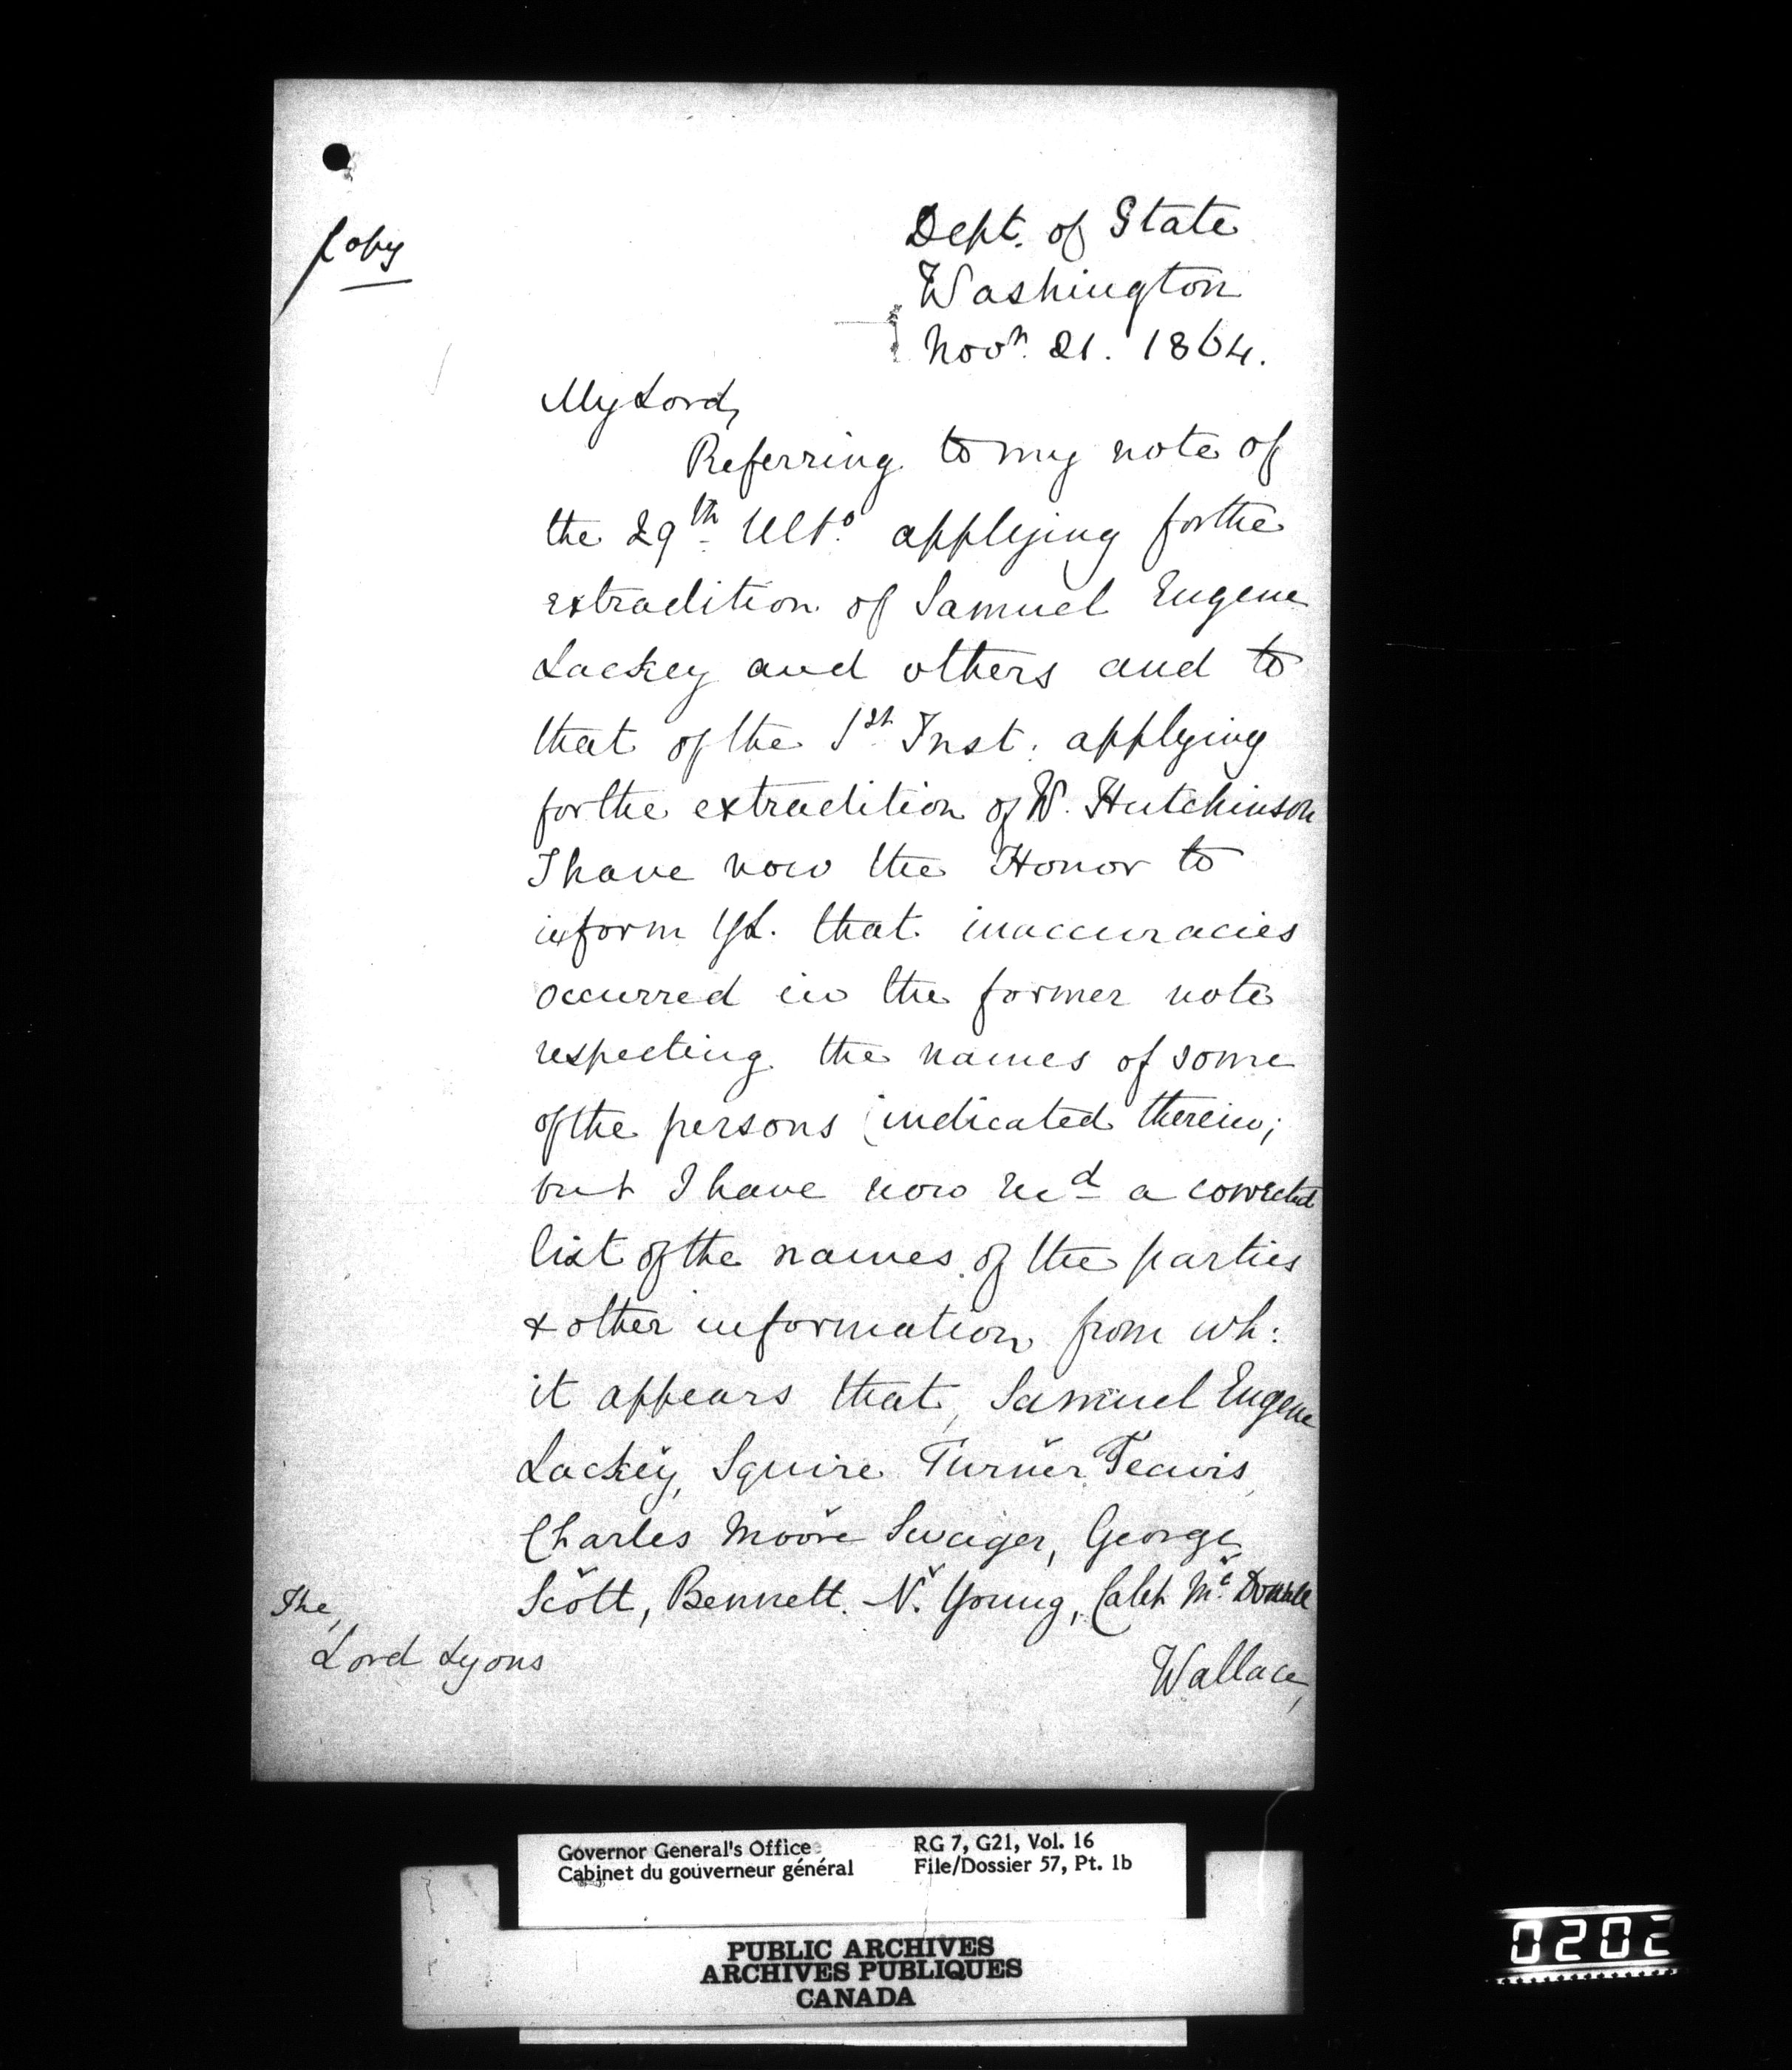 Copy
Dept. of State
Washington
Novr. 21. 1864.
My Lord,
Referring to my note of
the 29th Ulto. applying for the
extradition of Samuel Eugene
Lackey and others and to
that of the 1st Inst. applying
for the extradition of W. Hutchinson
I have now the Honor to
inform YL. that inaccuracies
occurred in the former note
respecting the names of some
of the persons indicated therein;
but I have now recd a corrected
list of the names of the parties
& other information from wh:
it appears that, Samuel Eugene
Lackey, Squire Turner Teavis,
Charles Moore Swager, George
Scott, Bennett. N. Young, Caleb Mc
Wallace,
The,
Lord Lyons
Governor General's Office
Cabinet du gouverneur général
RG 7, G21, Vol. 16
File/Dossier 57, Pt. 1b
PUBLIC ARCHIVES
ARCHIVES PUBLIQUES
CANADA
0202